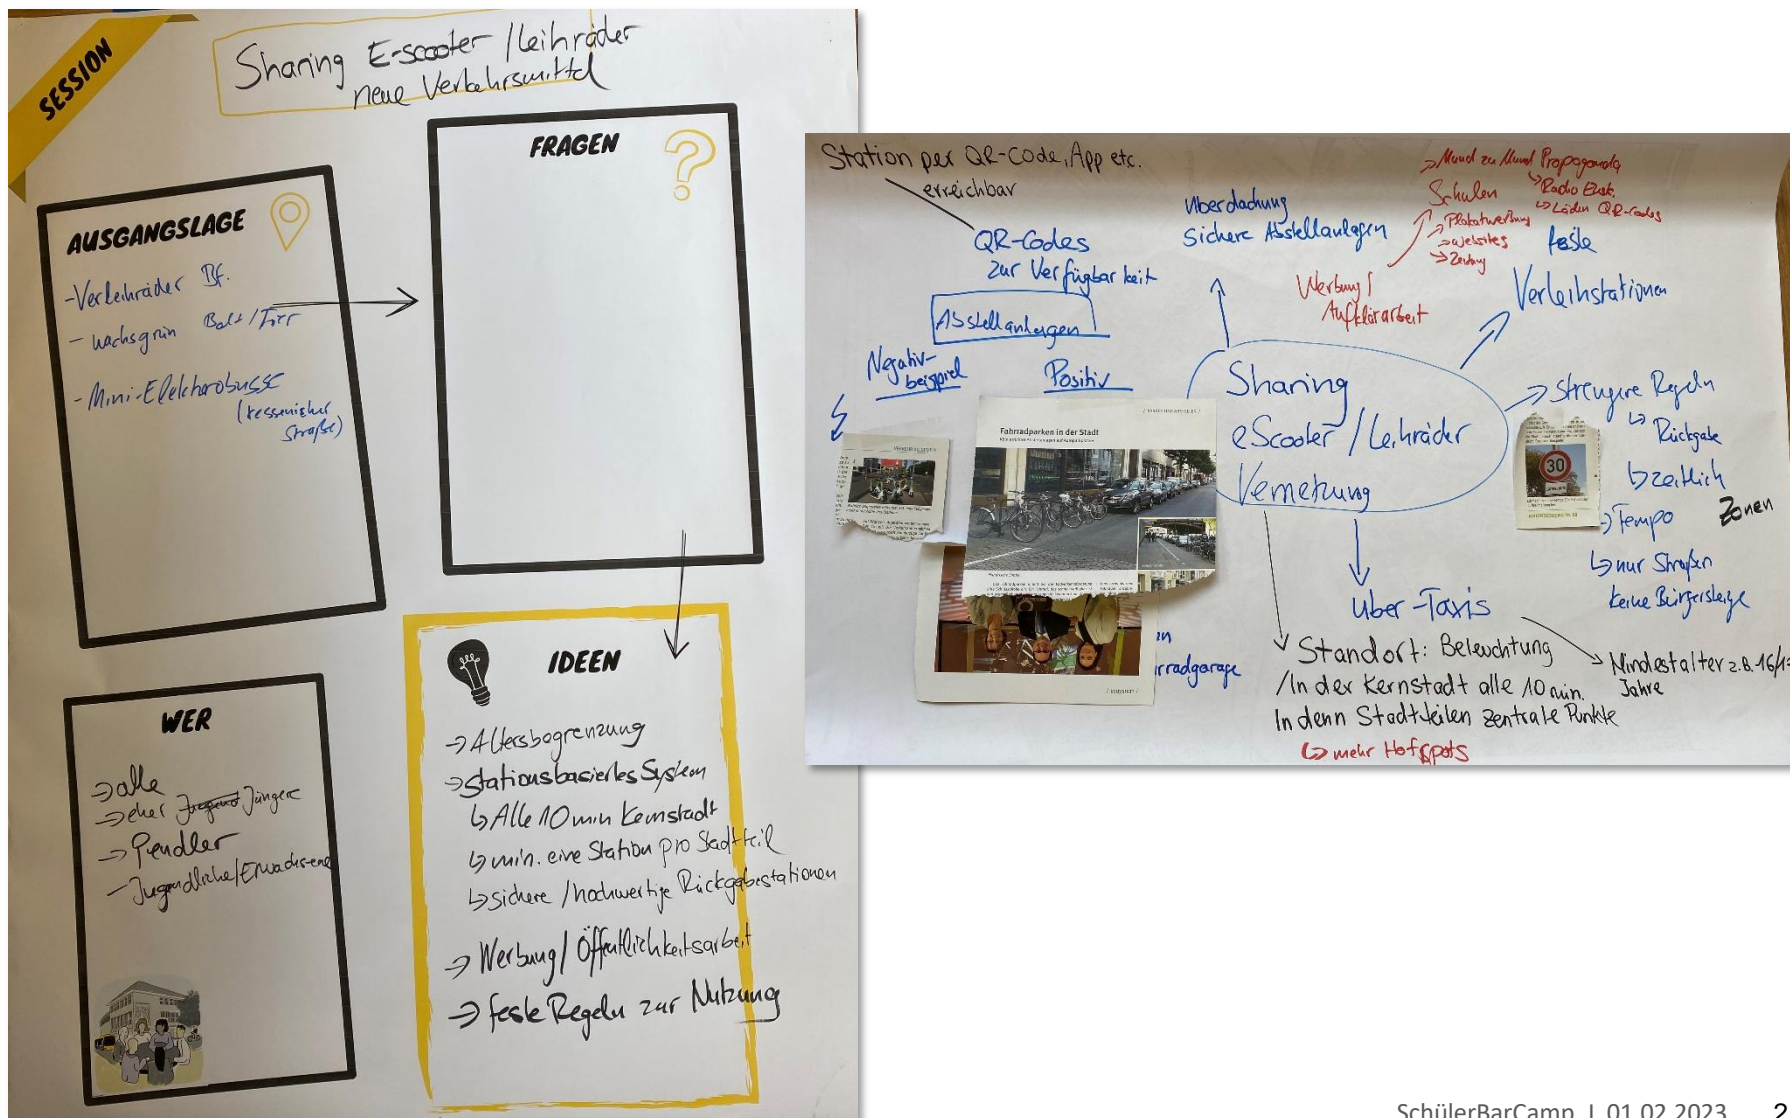 SESSION
Sharing E-Scooter / Leihräder
neue Verkehrsmittel
AUSGANGSLAGE
- Verleihräder Bf.
- wachsgrün
- Mini-Elekterobusse
Straße)
FRAGEN
?
WER
→ alle
→ eher Jüngere
→ Pendler
- Jugendliche/Erwachsene
IDEEN
→ Altersbegrenzung
→ Stationsbasiertes System
↳ Alle 10 min Kernstadt
↳ min. eine Station pro Stadtteil
↳ sichere / hochwertige Rückgabestationen
→ Werbung / Öffentlichkeitsarbeit
→ feste Regeln zur Nutzung
Station per QR-Code, App etc.
erreichbar
QR-Codes
zur Verfügbarkeit
Abstellanlagen
Negativ-
beispiel
Positiv
Überdachung
Sichere Abstellanlagen
Werbung /
Aufklärarbeit
→ Mund zu Mund Propaganda
↳ Radio Eusk.
↳ Läden QR-Codes
Schulen
→ Plakatwerbung
→ Websites
→ Zeitung
feste
Verleihstationen
Sharing
eScooter / Leihräder
Vernetzung
→ Strengere Regeln
↳ Rückgabe
↳ zeitlich
→ Tempo Zonen
↳ nur Straßen
keine Bürgersteige
30
Fahrradparken in der Stadt
rradgarage
Uber-Taxis
→ Mindestalter z.B. 16/
Jahre
Standort: Beleuchtung
/In der Kernstadt alle 10 min.
In denn Stadtteilen zentrale Punkte
↳ mehr Hotspots
SchülerBarCamp | 01.02.2023
2